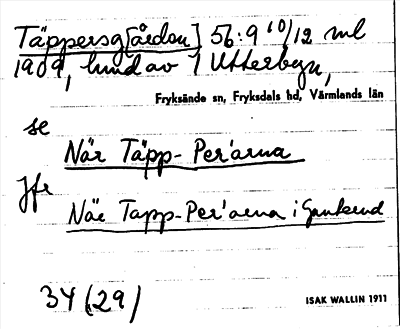 Täppersg[ården] 56:9 10/12 ml
1909, lund av 1 Utterbyn,
Fryksände sn, Fryksdals hd, Värmlands län
se
När Täpp-Per'arna
Jfr
När Tapp-Per'arna i
34 (29)
ISAK WALLIN 1911